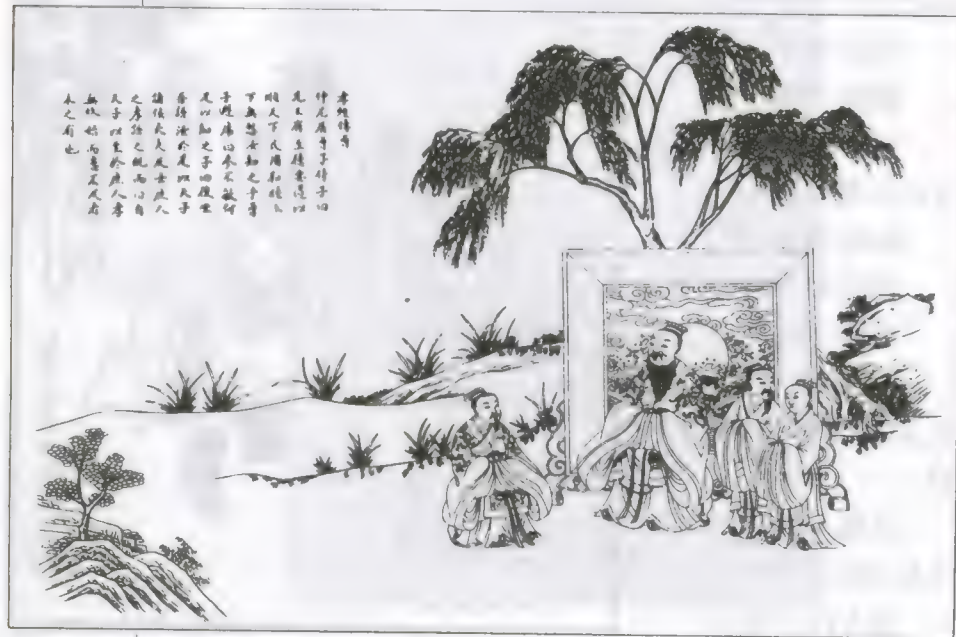 孝經傳曾
仲尼居曾子侍子曰
先王有至德要道以
順天下民用和睦上
下無怨女知之乎曾
子避席曰參不敏何
足以知之子曰復坐
吾語汝於是以天子
諸侯大夫及士庶人
之孝語之既而曰自
天子以至於庶人孝
無終始而患不及者
未之有也